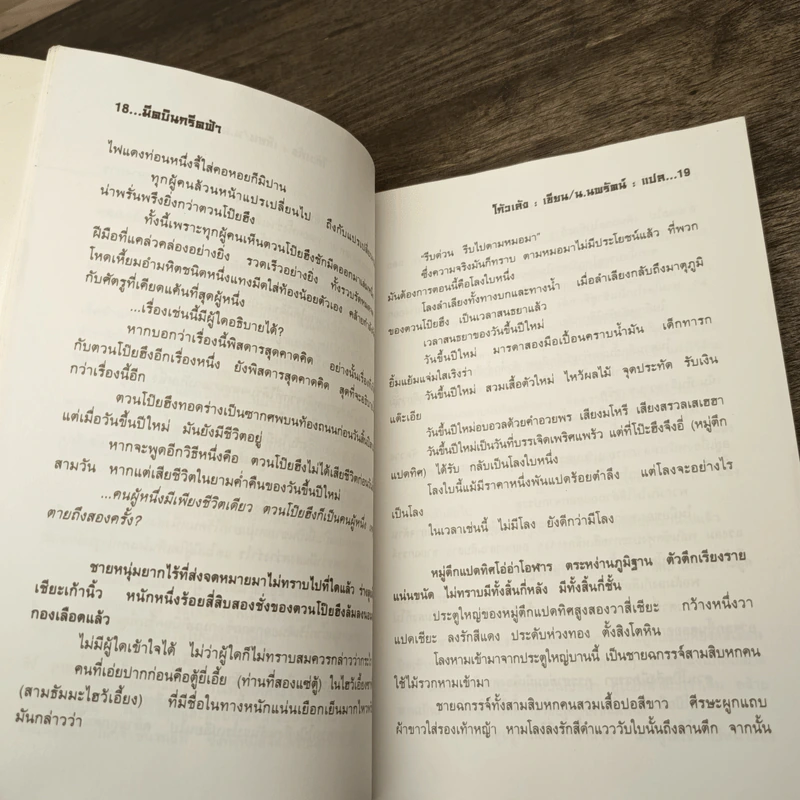 18...มีดบินกรีดฟ้า
ไฟแดงท่อนหนึ่งจี้ใส่คอหอยก็มิปาน
ทุกผู้คนล้วนหน้าแปรเปลี่ยนไป ถึงกับแปรเปลี่ยน
น่าพรั่นพรึงยิ่งกว่าตวนโป๊ยฮึง
ทั้งนี้เพราะทุกผู้คนเห็นตวนโป๊ยฮึงชักมีดออกมา
ฝีมือที่แคล่วคล่องอย่างยิ่ง รวดเร็วอย่างยิ่ง ทั้งรวบรัด
โหดเหี้ยมอำมหิตชนิดหนึ่งแทงมีดใส่ท้องน้อยตัวเอง
กับศัตรูที่เคียดแค้นที่สุดผู้หนึ่ง
...เรื่องเช่นนี้มีผู้ใดอธิบายได้?
หากบอกว่าเรื่องนี้พิสดารสุดคาดคิด อย่างนั้นเรื่อง
กับตวนโป๊ยฮึงอีกเรื่องหนึ่ง ยังพิสดารสุดคาดคิด สุดที่จะอธิบาย
กว่าเรื่องนี้อีก
ตวนโป๊ยฮึงทอดร่างเป็นซากศพบนท้องถนนก่อนวัน
แต่เมื่อวันขึ้นปีใหม่ มันยังมีชีวิตอยู่
หากจะพูดอีกวิธีหนึ่งคือ ตวนโป๊ยฮึงไม่ได้เสียชีวิตก่อน
สามวัน หากแต่เสียชีวิตในยามค่ำคืนของวันขึ้นปีใหม่
...คนผู้หนึ่งมีเพียงชีวิตเดียว ตวนโป๊ยฮึงก็เป็นคนผู้หนึ่ง
ตายถึงสองครั้ง?
ชายหนุ่มยากไร้ที่ส่งจดหมายมาไม่ทราบไปที่ใดแล้ว
เชียะเก้านิ้ว หนักหนึ่งร้อยสี่สิบสองชั่งของตวนโป๊ยฮึงล้มลง
กองเลือดแล้ว
ไม่มีผู้ใดเข้าใจได้ ไม่ว่าผู้ใดก็ไม่ทราบสมควรกล่าวว่ากระไร
คนที่เอ่ยปากก่อนคือตู้ยี่เอี้ย (ท่านที่สองแซ่ตู้) ในไฮว้เอี้ยง
(สามธัมมะไฮว้เอี้ยง) ที่มีชื่อในทางหนักแน่นเยือกเย็นมาก
มันกล่าวว่า
โก้วเล้ง : เขียน/น.นพรัตน์ : แปล...19
"รีบด่วน รีบไปตามหมอมา"
ซึ่งความจริงมันก็ทราบ ตามหมอมาไม่มีประโยชน์แล้ว ที่พวก
มันต้องการตอนนี้คือโลงใบหนึ่ง
โลงลำเลียงทั้งทางบกและทางน้ำ เมื่อลำเลียงกลับถึงมาตุภูมิ
ของตวนโป๊ยฮึง เป็นเวลาสนธยาแล้ว
เวลาสนธยาของวันขึ้นปีใหม่
วันขึ้นปีใหม่ มารดาสองมือเปื้อนคราบน้ำมัน เด็กทารก
ยิ้มแย้มแจ่มใสเริงร่า
วันขึ้นปีใหม่ สวมเสื้อตัวใหม่ ไหว้ผลไม้ จุดประทัด รับเงิน
แต๊ะเอีย
วันขึ้นปีใหม่อบอวลด้วยคำอวยพร เสียงมโหรี เสียงสรวลเสเฮฮา
วันขึ้นปีใหม่เป็นวันที่บรรเจิดเพริศแพร้ว แต่ที่โป๊ะฮึงจึงอี่ (หมู่ตึก
แปดทิศ) ได้รับ กลับเป็นโลงใบหนึ่ง
โลงใบนี้แม้มีราคาหนึ่งพันแปดร้อยตำลึง แต่โลงจะอย่างไร
เป็นโลง
ในเวลาเช่นนี้ ไม่มีโลง ยังดีกว่ามีโลง
หมู่ตึกแปดทิศโอ่อ่าโอฬาร ตระหง่านภูมิฐาน ตัวตึกเรียงราย
แน่นขนัด ไม่ทราบมีทั้งสิ้นกี่หลัง มีทั้งสิ้นกี่ชั้น
ประตูใหญ่ของหมู่ตึกแปดทิศสูงสองวาสี่เชียะ กว้างหนึ่งวา
แปดเชียะ ลงรักสีแดง ประดับห่วงทอง ตั้งสิงโตหิน
โลงหามเข้ามาจากประตูใหญ่บานนี้ เป็นชายฉกรรจ์สามสิบหกคน
ใช้ไม้รวกหามเข้ามา
ชายฉกรรจ์ทั้งสามสิบหกคนสวมเสื้อปอสีขาว ศีรษะผูกแถบ
ผ้าขาวใส่รองเท้าหญ้า หามโลงลงรักสีดำแวววับใบนั้นถึงลานตึก จากนั้น